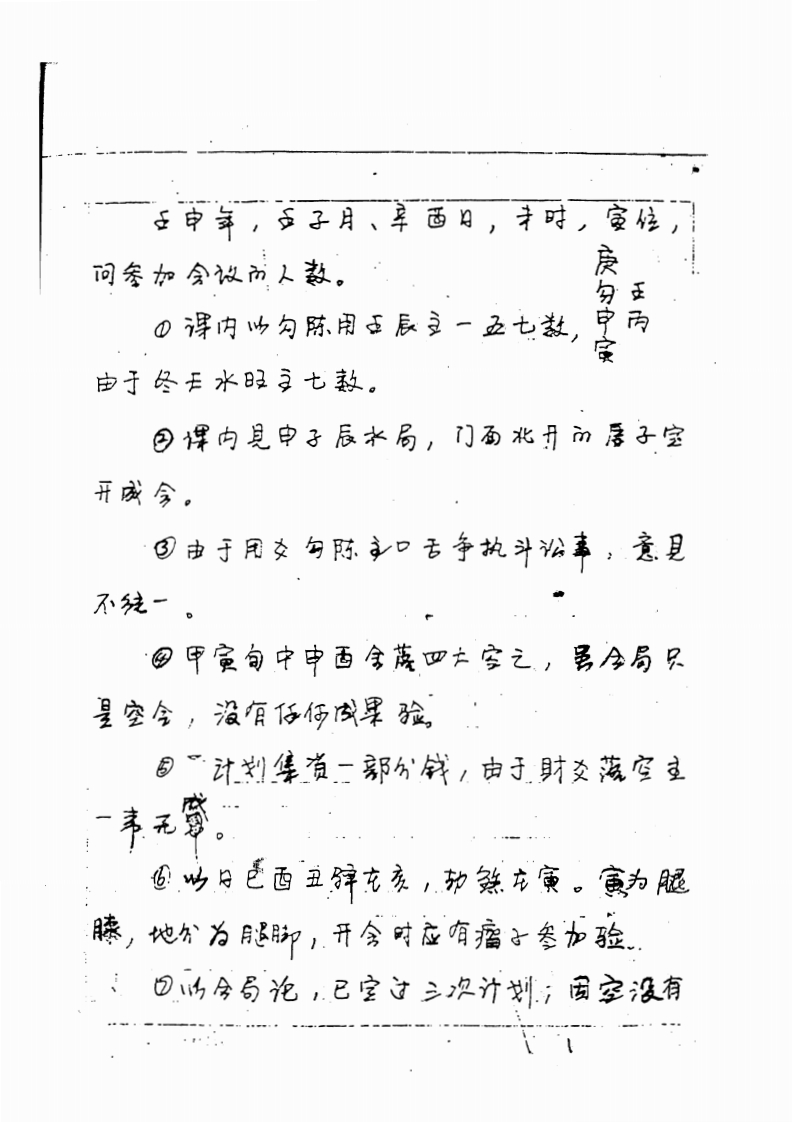 壬申年，壬子月、辛酉日，未时，寅位，
问参加会议的人数。
庚
勾 壬
申 丙
寅
①课内以勾陈用壬辰主一五七数，
由于冬天水旺主七数。
②课内见申子辰水局，门面北开的房子室
开成会。
③由于用爻勾陈主口舌争执斗讼事，意见
不统一。
④甲寅旬中申酉金落四大空亡，虽合局只
是空合，没有任何成果验。
⑤计划集资一部分钱，由于财爻落空主
一事无成。
⑥以日巳酉丑驿在亥，劫煞在寅。寅为腿
膝，地分为腿脚，开会时应有瘸子参加验。
⑦以合局论，已定过三次计划；因空没有